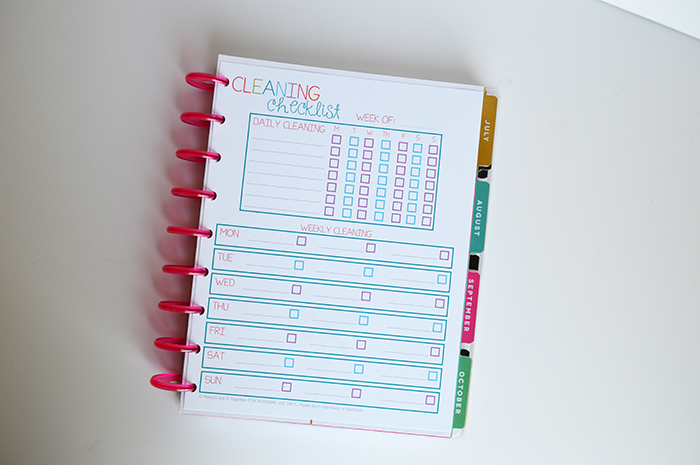 CLEANING
checklist
WEEK OF:
DAILY CLEANING M T W Th F S S
WEEKLY CLEANING
MON
TUE
WED
THU
FRI
SAT
SUN
JULY
AUGUST
SEPTEMBER
OCTOBER